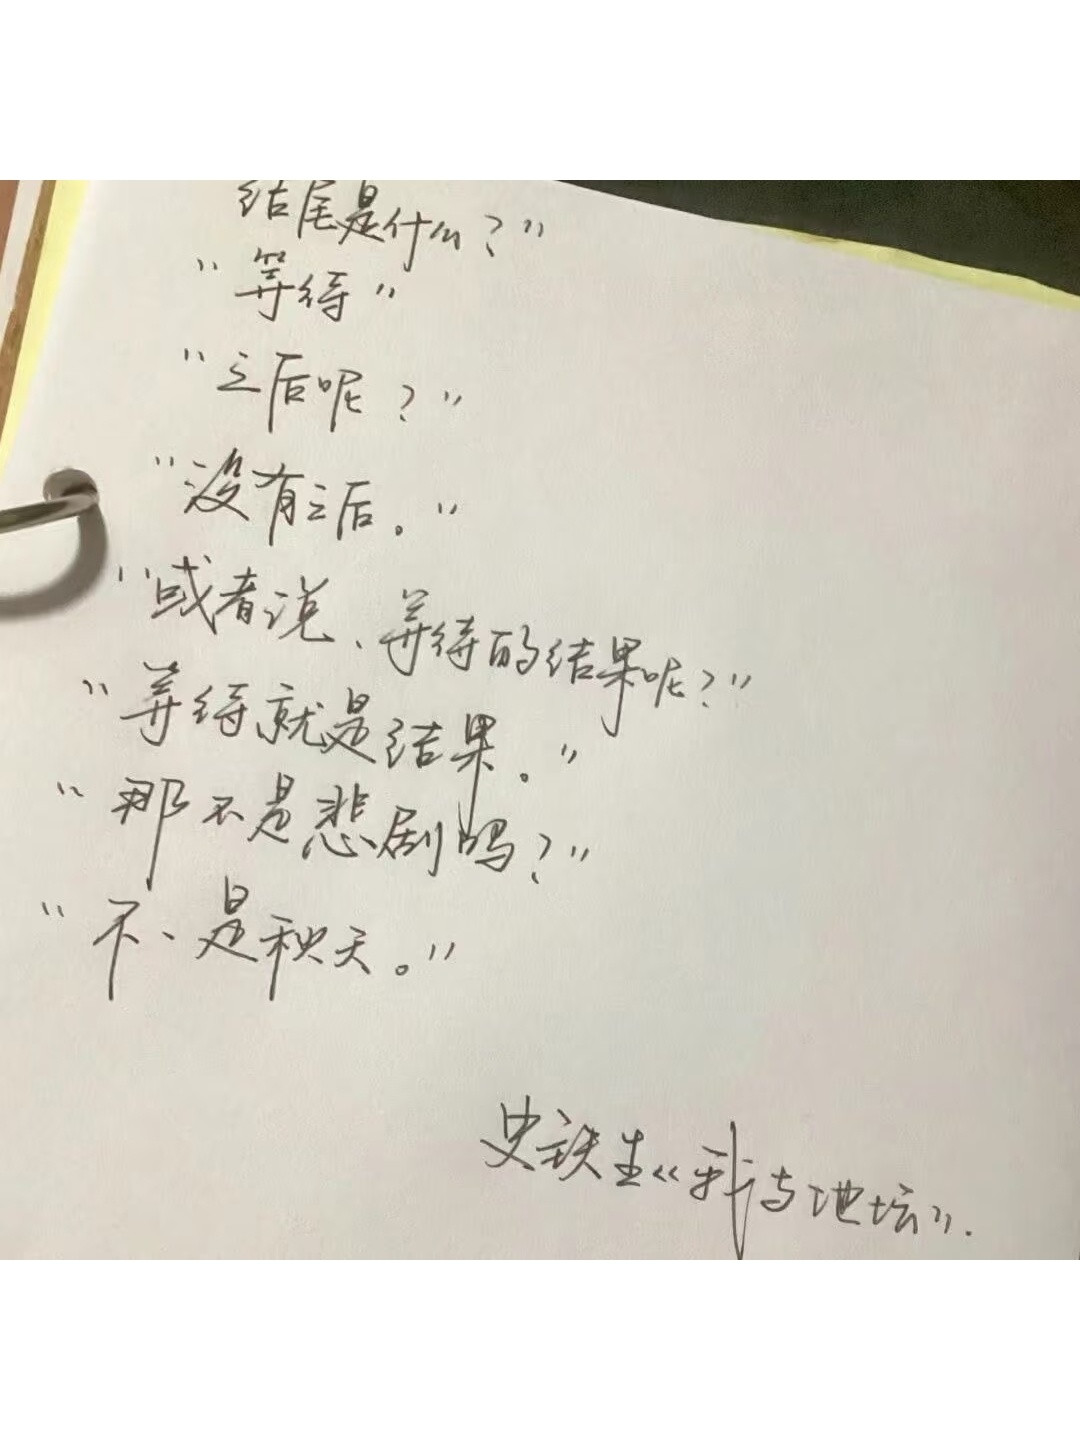 结尾是什么？”
“等待”
“之后呢？”
“没有之后。”
“或者说、等待的结果呢？”
“等待就是结果。”
“那不是悲剧吗？”
“不、是秋天。”
史铁生《我与地坛》.